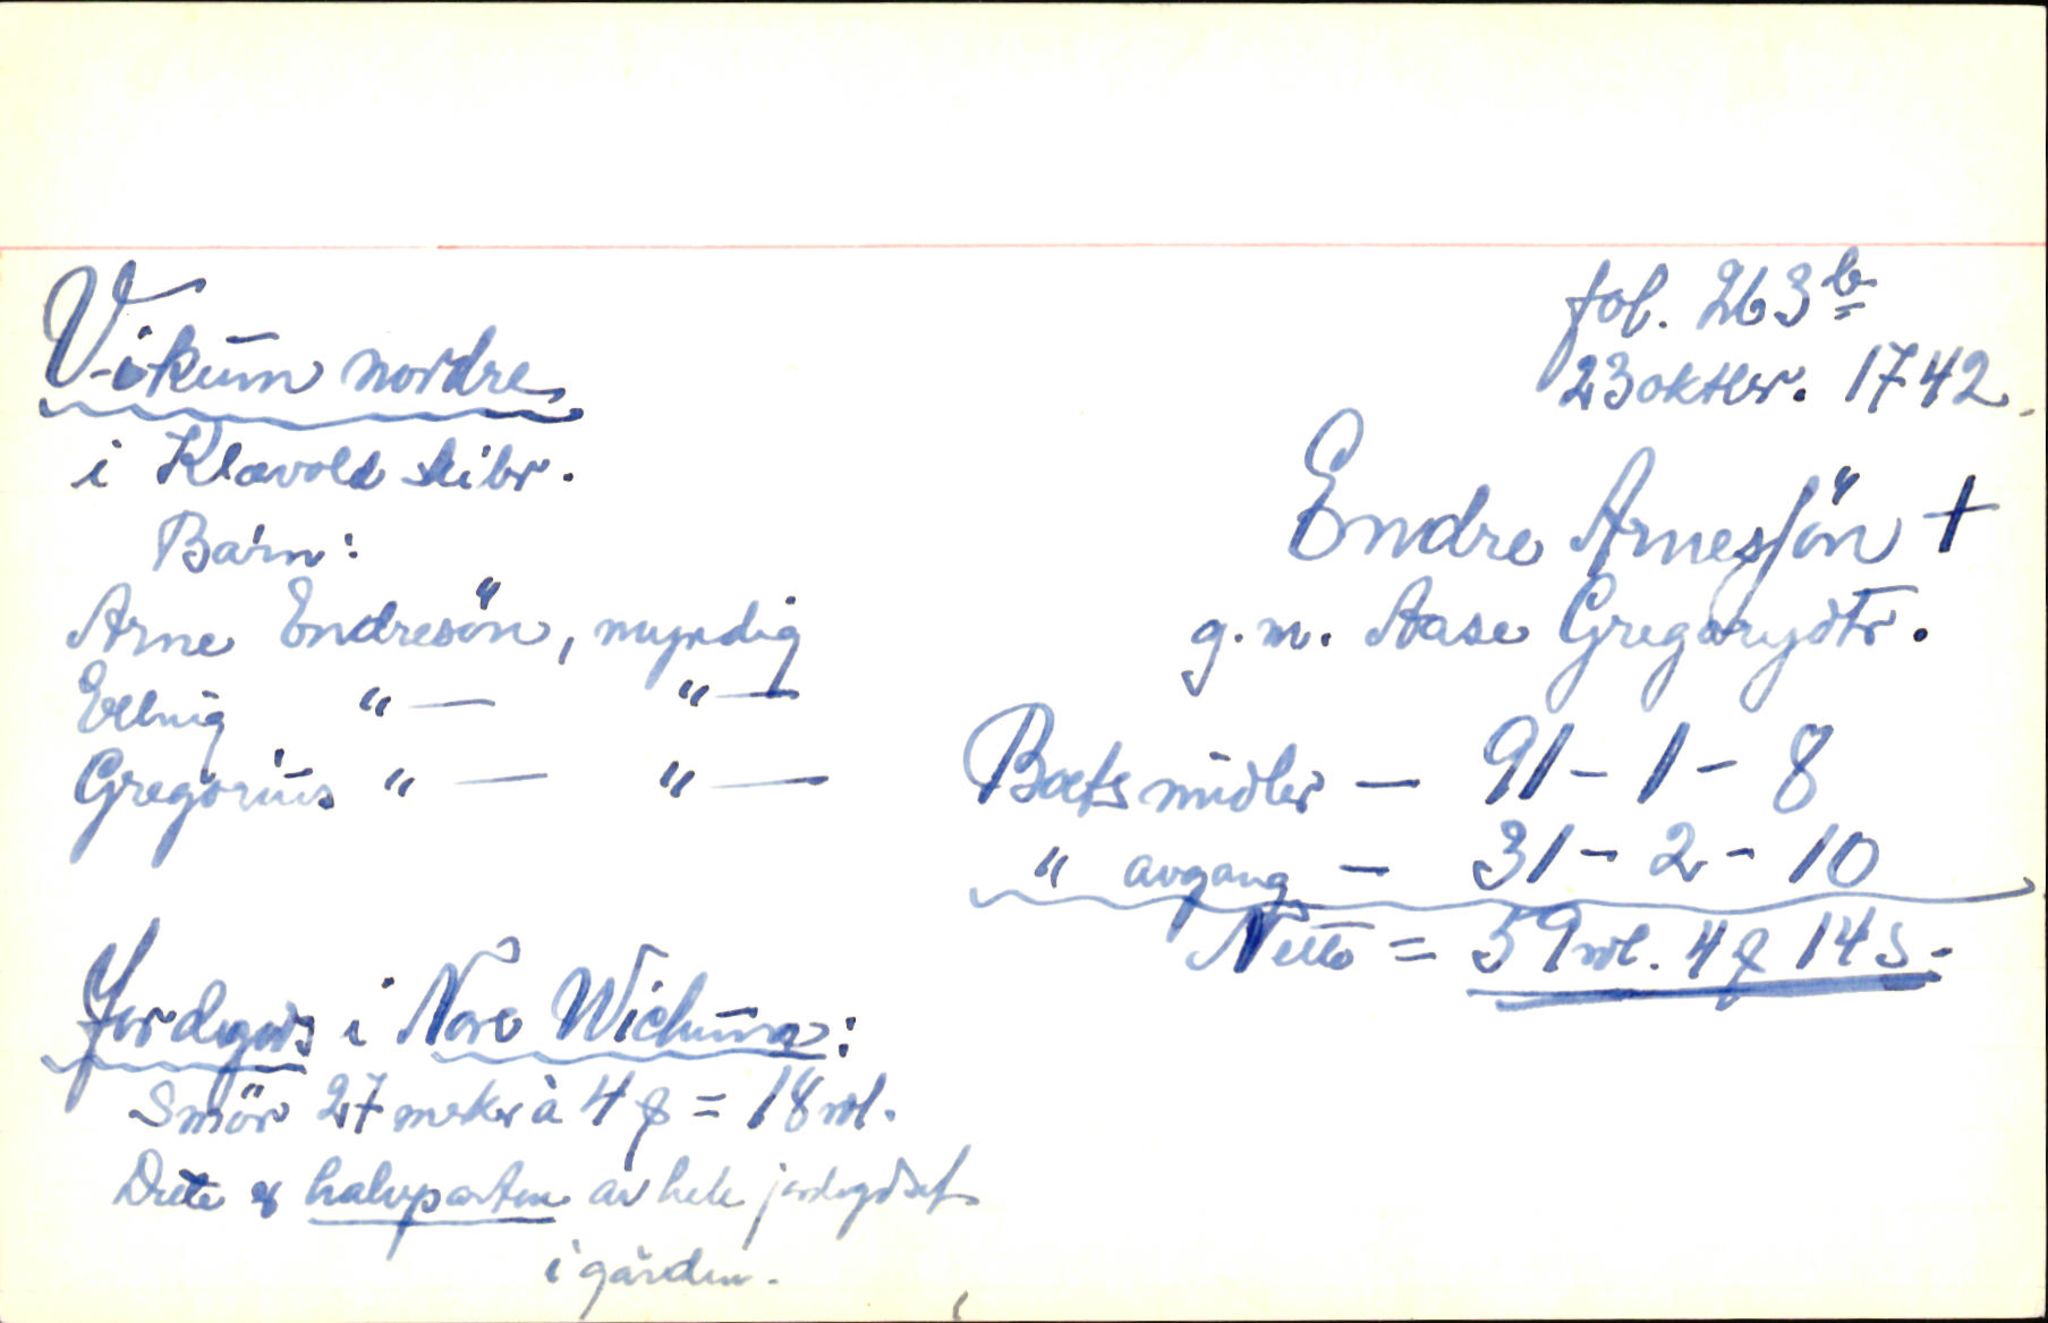 fol. 263 b
Vikum nordre
23 oktbr. 1742.
i Klævold skibr.
Endre Arnessön +
Barn:
g. m. Aase Gregarysdtr.
Arne Endresön, myndig
Elling " — " —
Gregorius " — " —
Boets midler — 91 - 1 - 8
" avgang — 31 - 2 - 10
Netto = 59 rdl. 4 ƶ 14 s.
Jordegods i Nore Wichum:
Smör 27 mrker à 4 ƶ = 18 rdl.
Dette er halvparten av hele jordegodset
i gården.